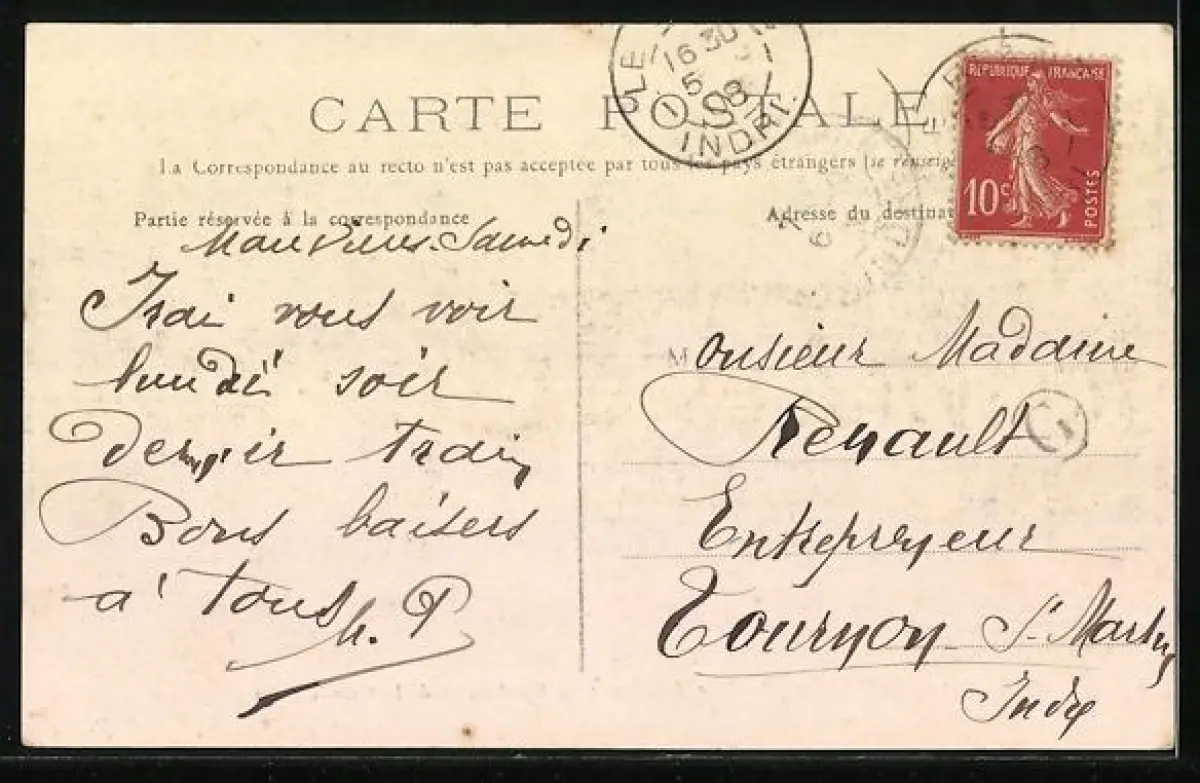 CARTE POSTALE
La Correspondance au recto n'est pas acceptée par tous les pays étrangers (se renseig
Partie réservée à la correspondance
Samedi
Irai vous voir
lundi soir
dernier train
Bons baisers
à tous
h. P
Adresse du destinat
Monsieur Maddine
Renault
Entrepreneur
Tournon St Martin
Indre
REPUBLIQUE FRANCAISE
10c
POSTES
LE
16 30
5
08
INDRE